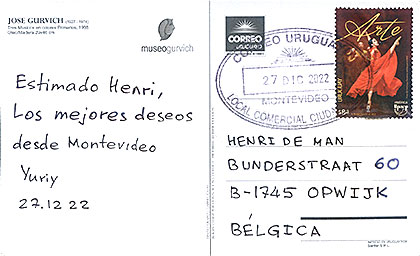 JOSE GURVICH (1927 - 1974)
Tres Músicos en colores Primarios, 1966
museogurvich
Estimado Henri,
Los mejores deseos
desde Montevideo
Yuriy
27.12.22
CORREO
URUGUAYO
CORREO URUGUAYO
27 DIC 2022
MONTEVIDEO
LOCAL COMERCIAL CIUD
Arte
URUGUAY
HENRI DE MAN
BUNDERSTRAAT 60
B-1745 OPWIJK
BÉLGICA